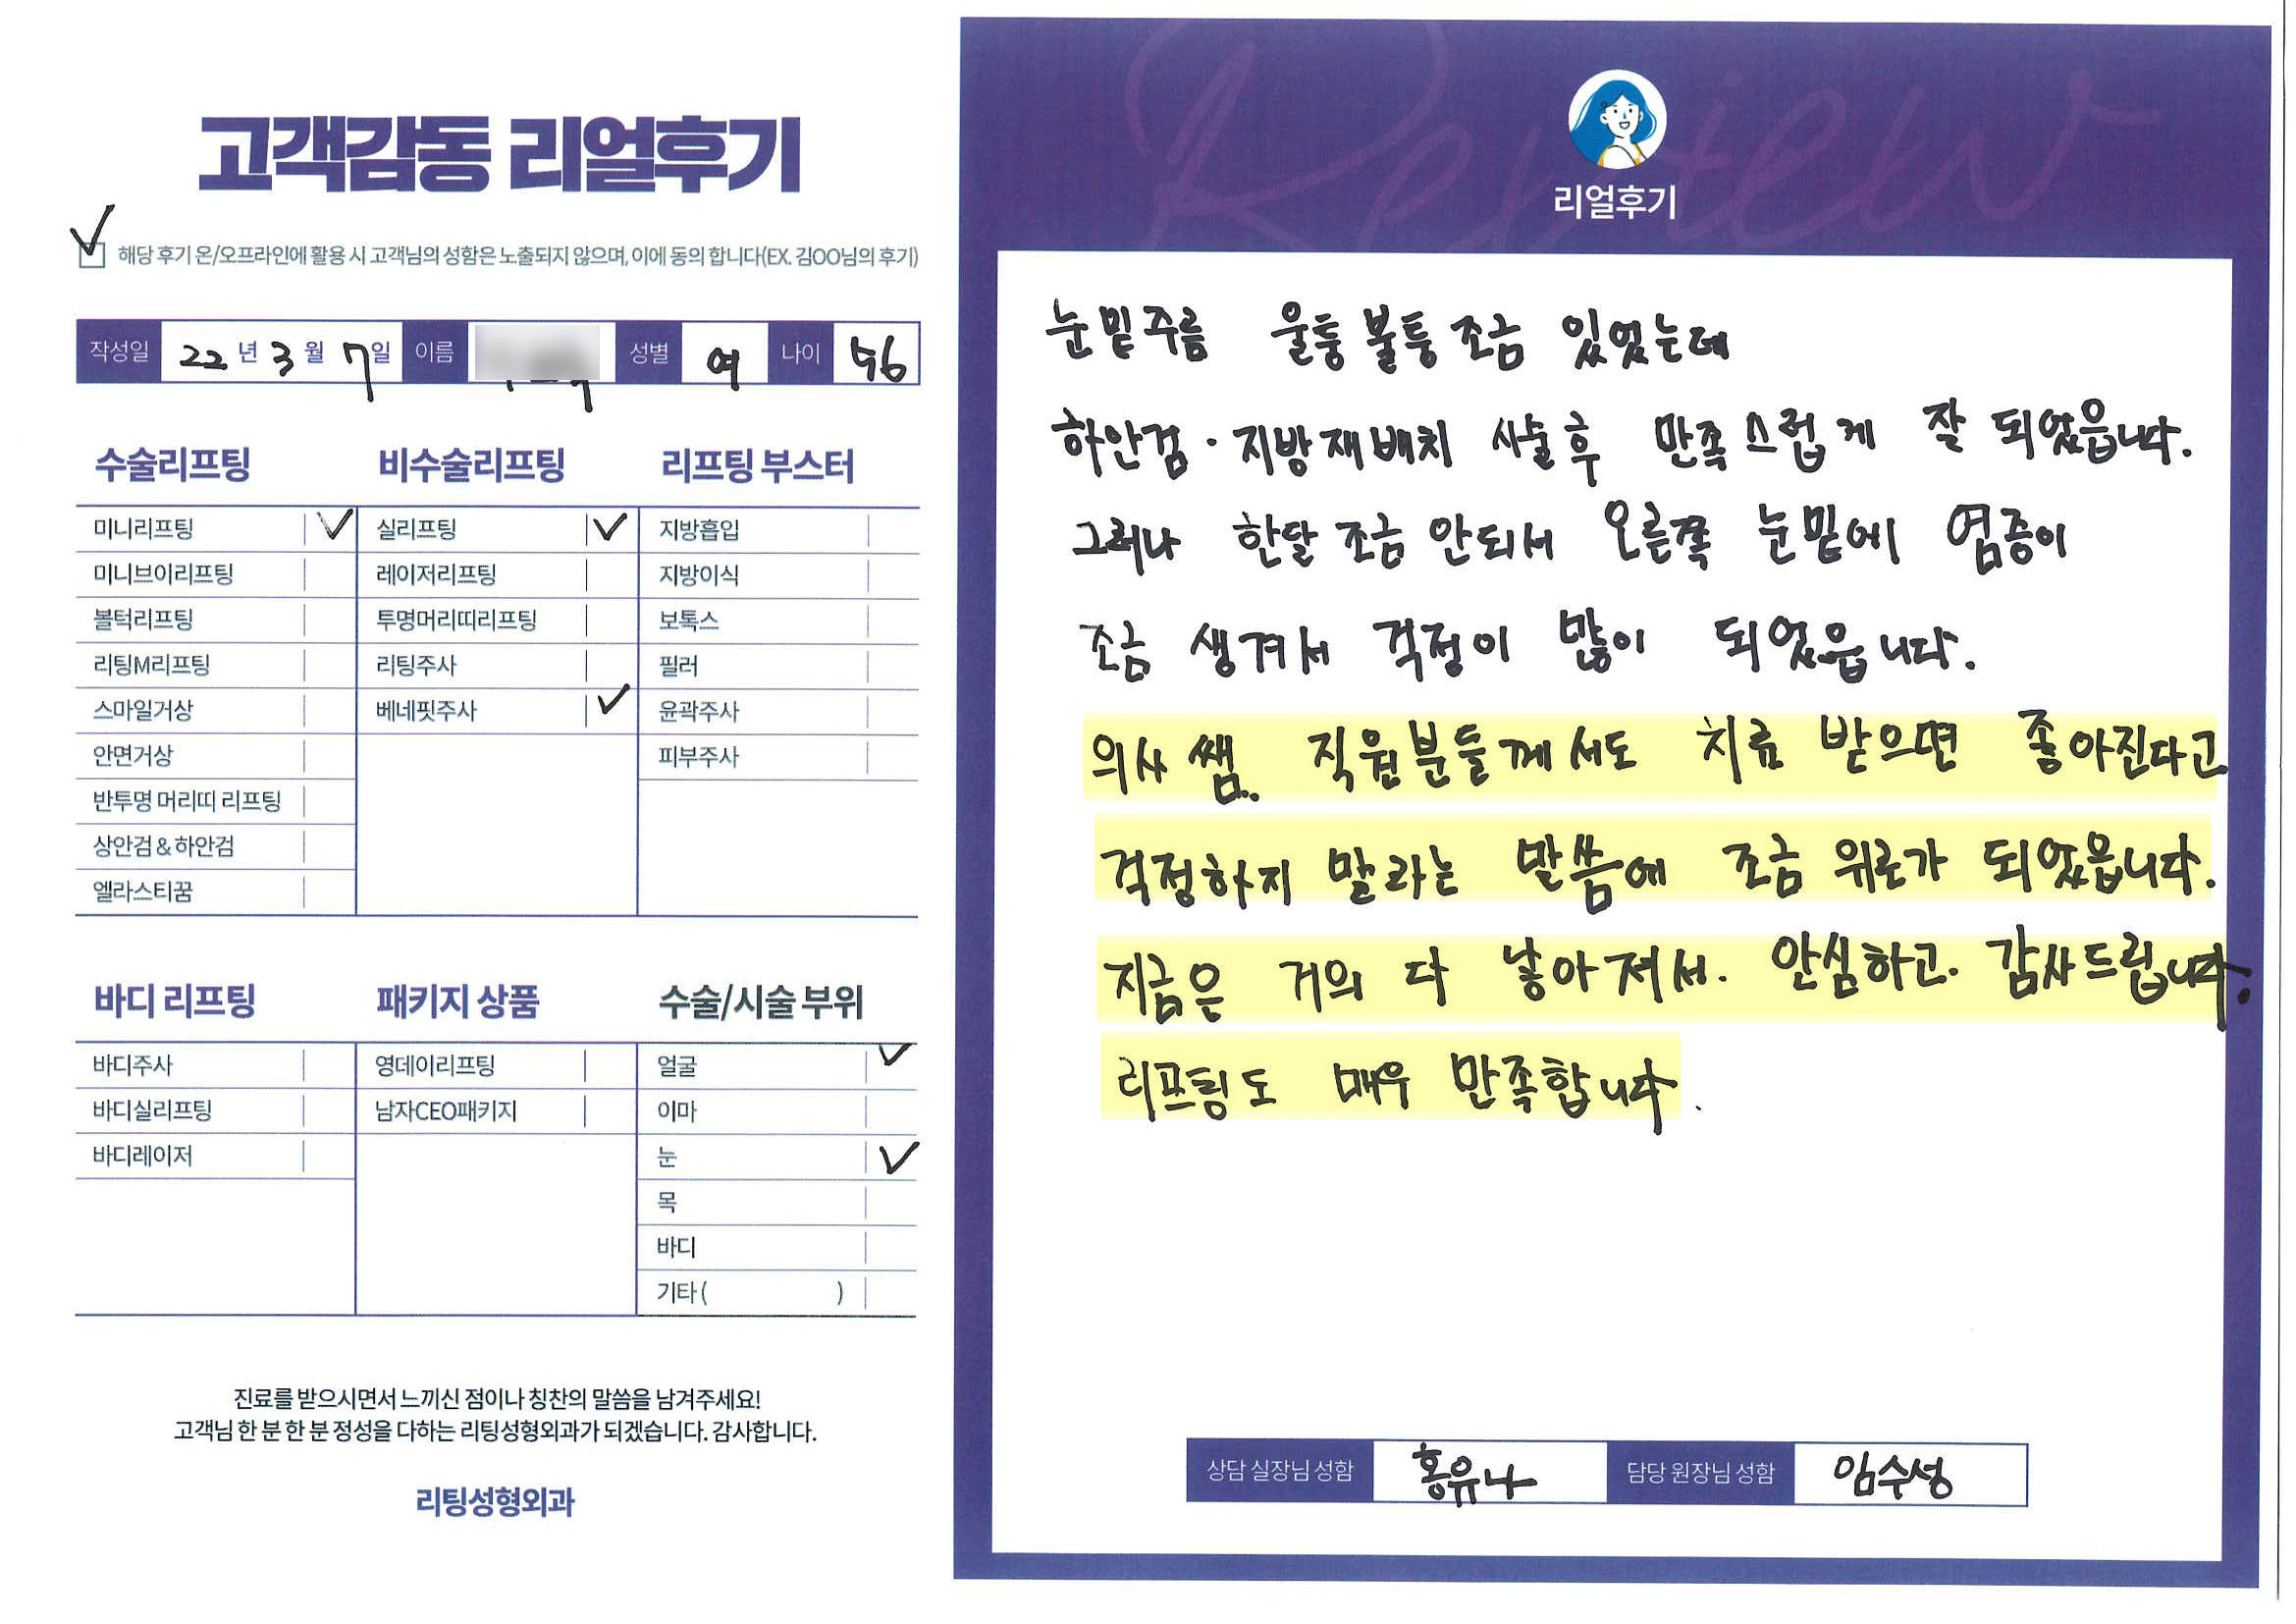 고객감동 리얼후기
✓ 해당 후기 온/오프라인에 활용 시 고객님의 성함은 노출되지 않으며, 이에 동의 합니다(EX. 김OO님의 후기)
작성일 22년 3월 7일 이름 성별 여 나이 56
수술리프팅
미니리프팅 ✓
미니브이리프팅
볼턱리프팅
리팅M리프팅
스마일거상
안면거상
반투명 머리띠 리프팅
상안검 & 하안검
엘라스티꿈
비수술리프팅
실리프팅 ✓
레이저리프팅
투명머리띠리프팅
리팅주사
베네핏주사 ✓
리프팅 부스터
지방흡입
지방이식
보톡스
필러
윤곽주사
피부주사
바디 리프팅
바디주사
바디실리프팅
바디레이저
패키지 상품
영데이리프팅
남자CEO패키지
수술/시술 부위
얼굴 ✓
이마
눈 ✓
목
바디
기타 ( )
진료를 받으시면서 느끼신 점이나 칭찬의 말씀을 남겨주세요!
고객님 한 분 한 분 정성을 다하는 리팅성형외과가 되겠습니다. 감사합니다.
리팅성형외과
Review
리얼후기
눈밑주름 울퉁불퉁 조금 있었는데
하안검·지방재배치 시술후 만족스럽게 잘 되었읍니다.
그러나 한달 조금 안되서 오른쪽 눈밑에 염증이
조금 생겨서 걱정이 많이 되었읍니다.
의사 쌤.. 직원분들께서도 치료 받으면 좋아진다고
걱정하지 말라는 말씀에 조금 위로가 되었읍니다.
지금은 거의 다 낳아져서. 안심하고. 감사드립니다.
리프팅도 매우 만족합니다.
상담 실장님 성함 홍유나 담당 원장님 성함 임수성